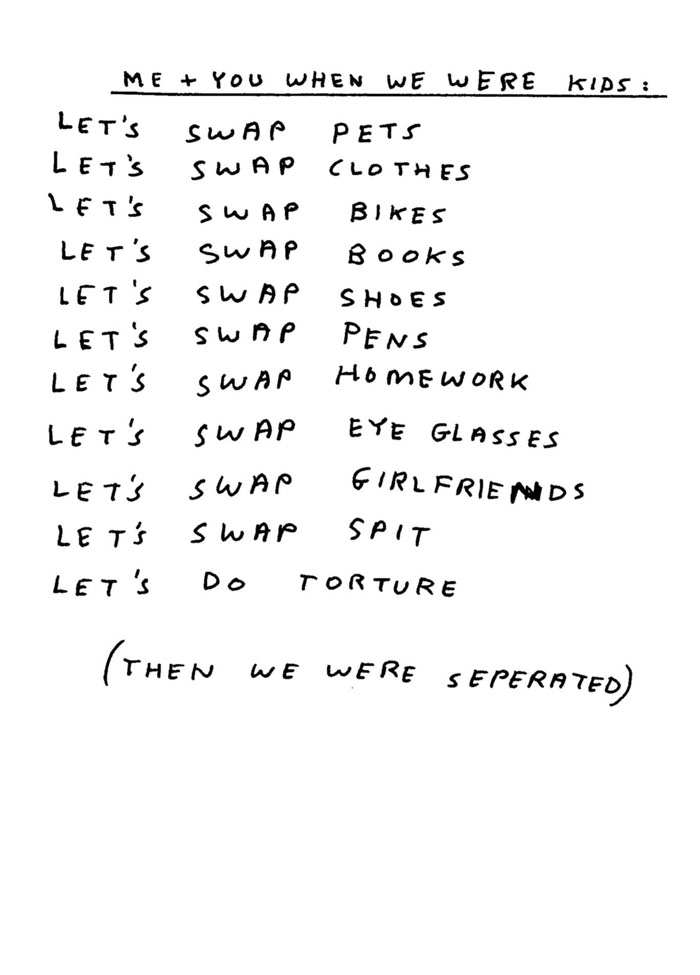 ME + YOU WHEN WE WERE KIDS:
LET'S SWAP PETS
LET'S SWAP CLOTHES
LET'S SWAP BIKES
LET'S SWAP BOOKS
LET'S SWAP SHOES
LET'S SWAP PENS
LET'S SWAP HOMEWORK
LET'S SWAP EYE GLASSES
LET'S SWAP GIRLFRIENDS
LET'S SWAP SPIT
LET'S DO TORTURE
(THEN WE WERE SEPERATED)